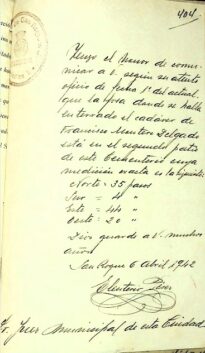 404.
Tengo el honor de comu-
nicar a V. según su atento
oficio de fecha 1º del actual,
que la fosa donde se halla
enterrado el cadáver de
Francisco Montero Delgado
está en el segundo patio
de este Cementerio cuya
medición exacta es la siguiente:
Norte = 35 pasos
Sur = 4 "
Este = 44 "
Oeste = 20 "
Dios guarde a V. muchos
años
San Roque 6 Abril 1942
Sr. Juez Municipal de esta Ciudad